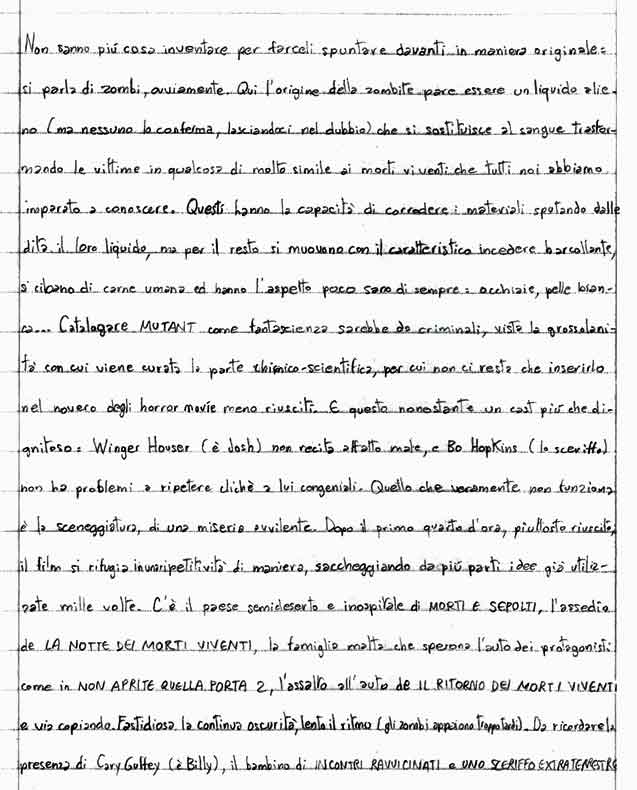 Non sanno più cosa inventare per farceli spuntare davanti in maniera originale:
si parla di zombi, ovviamente. Qui l'origine della zombite pare essere un liquido alie-
no (ma nessuno lo conferma, lasciandoci nel dubbio) che si sostituisce al sangue trasfor-
mando le vittime in qualcosa di molto simile ai morti viventi che tutti noi abbiamo
imparato a conoscere. Questi hanno la capacità di corrodere i materiali sputando dalle
dita il loro liquido, ma per il resto si muovono con il caratteristico incedere barcollante,
si cibano di carne umana ed hanno l'aspetto poco sano di sempre: occhiaie, pelle bian-
ca... Catalogare MUTANT come fantascienza sarebbe da criminali, vista la grossolani-
tà con cui viene curata la parte chimico-scientifica, per cui non ci resta che inserirlo
nel novero degli horror movie meno riusciti. E questo nonostante un cast più che di-
gnitoso: Winger Houser (è Josh) non recita affatto male, e Bo Hopkins (lo sceriffo)
non ha problemi a ripetere clichè a lui congeniali. Quello che veramente non funziona
è la sceneggiatura, di una miseria avvilente. Dopo il primo quarto d'ora, piuttosto riuscito,
il film si rifugia in una ripetitività di maniera, saccheggiando da più parti idee già utiliz-
zate mille volte. C'è il paese semideserto e inospitale di MORTI E SEPOLTI, l'assedio
de LA NOTTE DEI MORTI VIVENTI, la famiglia matta che sperona l'auto dei protagonisti
come in NON APRITE QUELLA PORTA 2, l'assalto all'auto de IL RITORNO DEI MORTI VIVENTI
e via copiando. Fastidiosa la continua oscurità, lento il ritmo (gli zombi appaiono troppo tardi). Da ricordare la
presenza di Cary Guffey (è Billy), il bambino di INCONTRI RAVVICINATI e UNO SCERIFFO EXTRATERRESTRE